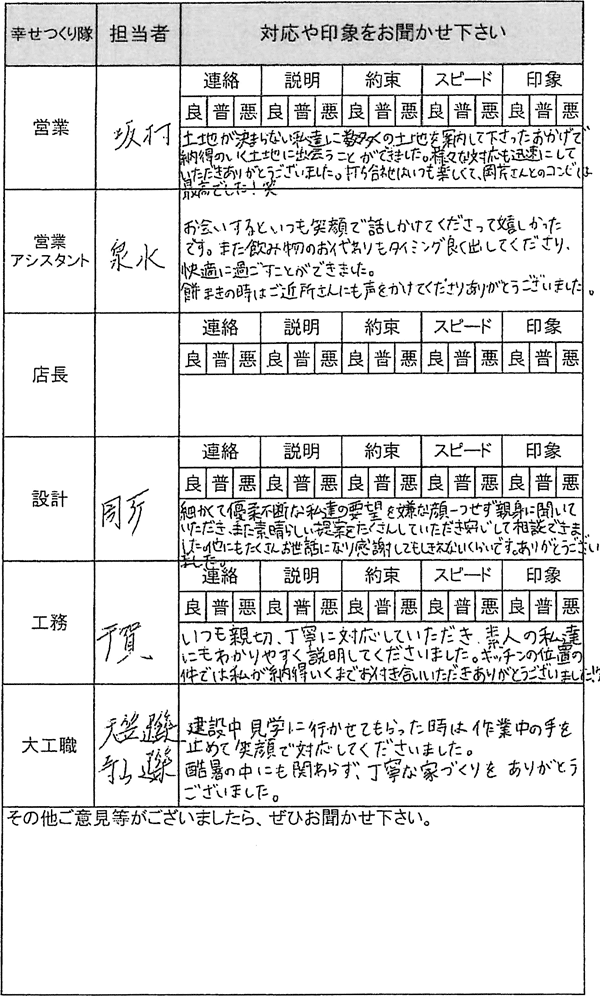 幸せつくり隊 担当者 対応や印象をお聞かせ下さい
連絡 説明 約束 スピード 印象
良 普 悪 良 普 悪 良 普 悪 良 普 悪 良 普 悪
営業 坂村
土地が決まらない私達に数多くの土地を案内して下さったおかげで
納得のいく土地に出会うことができました。様々な対応も迅速にして
いただきありがとうございました。打ち合わせはいつも楽しくて、岡芹さんとのコンビは
最高でした！笑
営業
アシスタント
泉水
お会いするといつも笑顔で話しかけてくださって嬉しかった
です。また飲み物のおかわりもタイミング良く出してくださり、
快適に過ごすことができました。
餅まきの時はご近所さんにも声をかけてくださりありがとうございました。
連絡 説明 約束 スピード 印象
良 普 悪 良 普 悪 良 普 悪 良 普 悪 良 普 悪
店長
連絡 説明 約束 スピード 印象
良 普 悪 良 普 悪 良 普 悪 良 普 悪 良 普 悪
設計 岡芹
細かくて優柔不断な私達の要望を嫌な顔一つせず親身に聞いて
いただき、また素晴らしい提案をたくさんしていただき安心して相談できま
した。他にもたくさんお世話になり感謝してもしきれないくらいです。ありがとうござい
ました。
連絡 説明 約束 スピード 印象
良 普 悪 良 普 悪 良 普 悪 良 普 悪 良 普 悪
工務 千賀
いつも親切、丁寧に対応していただき、素人の私達
にもわかりやすく説明してくださいました。キッチンの位置の
件では私が納得いくまでお付き合いいただきありがとうございました!!
大工職
建設中見学に行かせてもらった時は作業中の手を
止めて笑顔で対応してくださいました。
酷暑の中にも関わらず、丁寧な家づくりをありがとう
ございました。
その他ご意見等がございましたら、ぜひお聞かせ下さい。